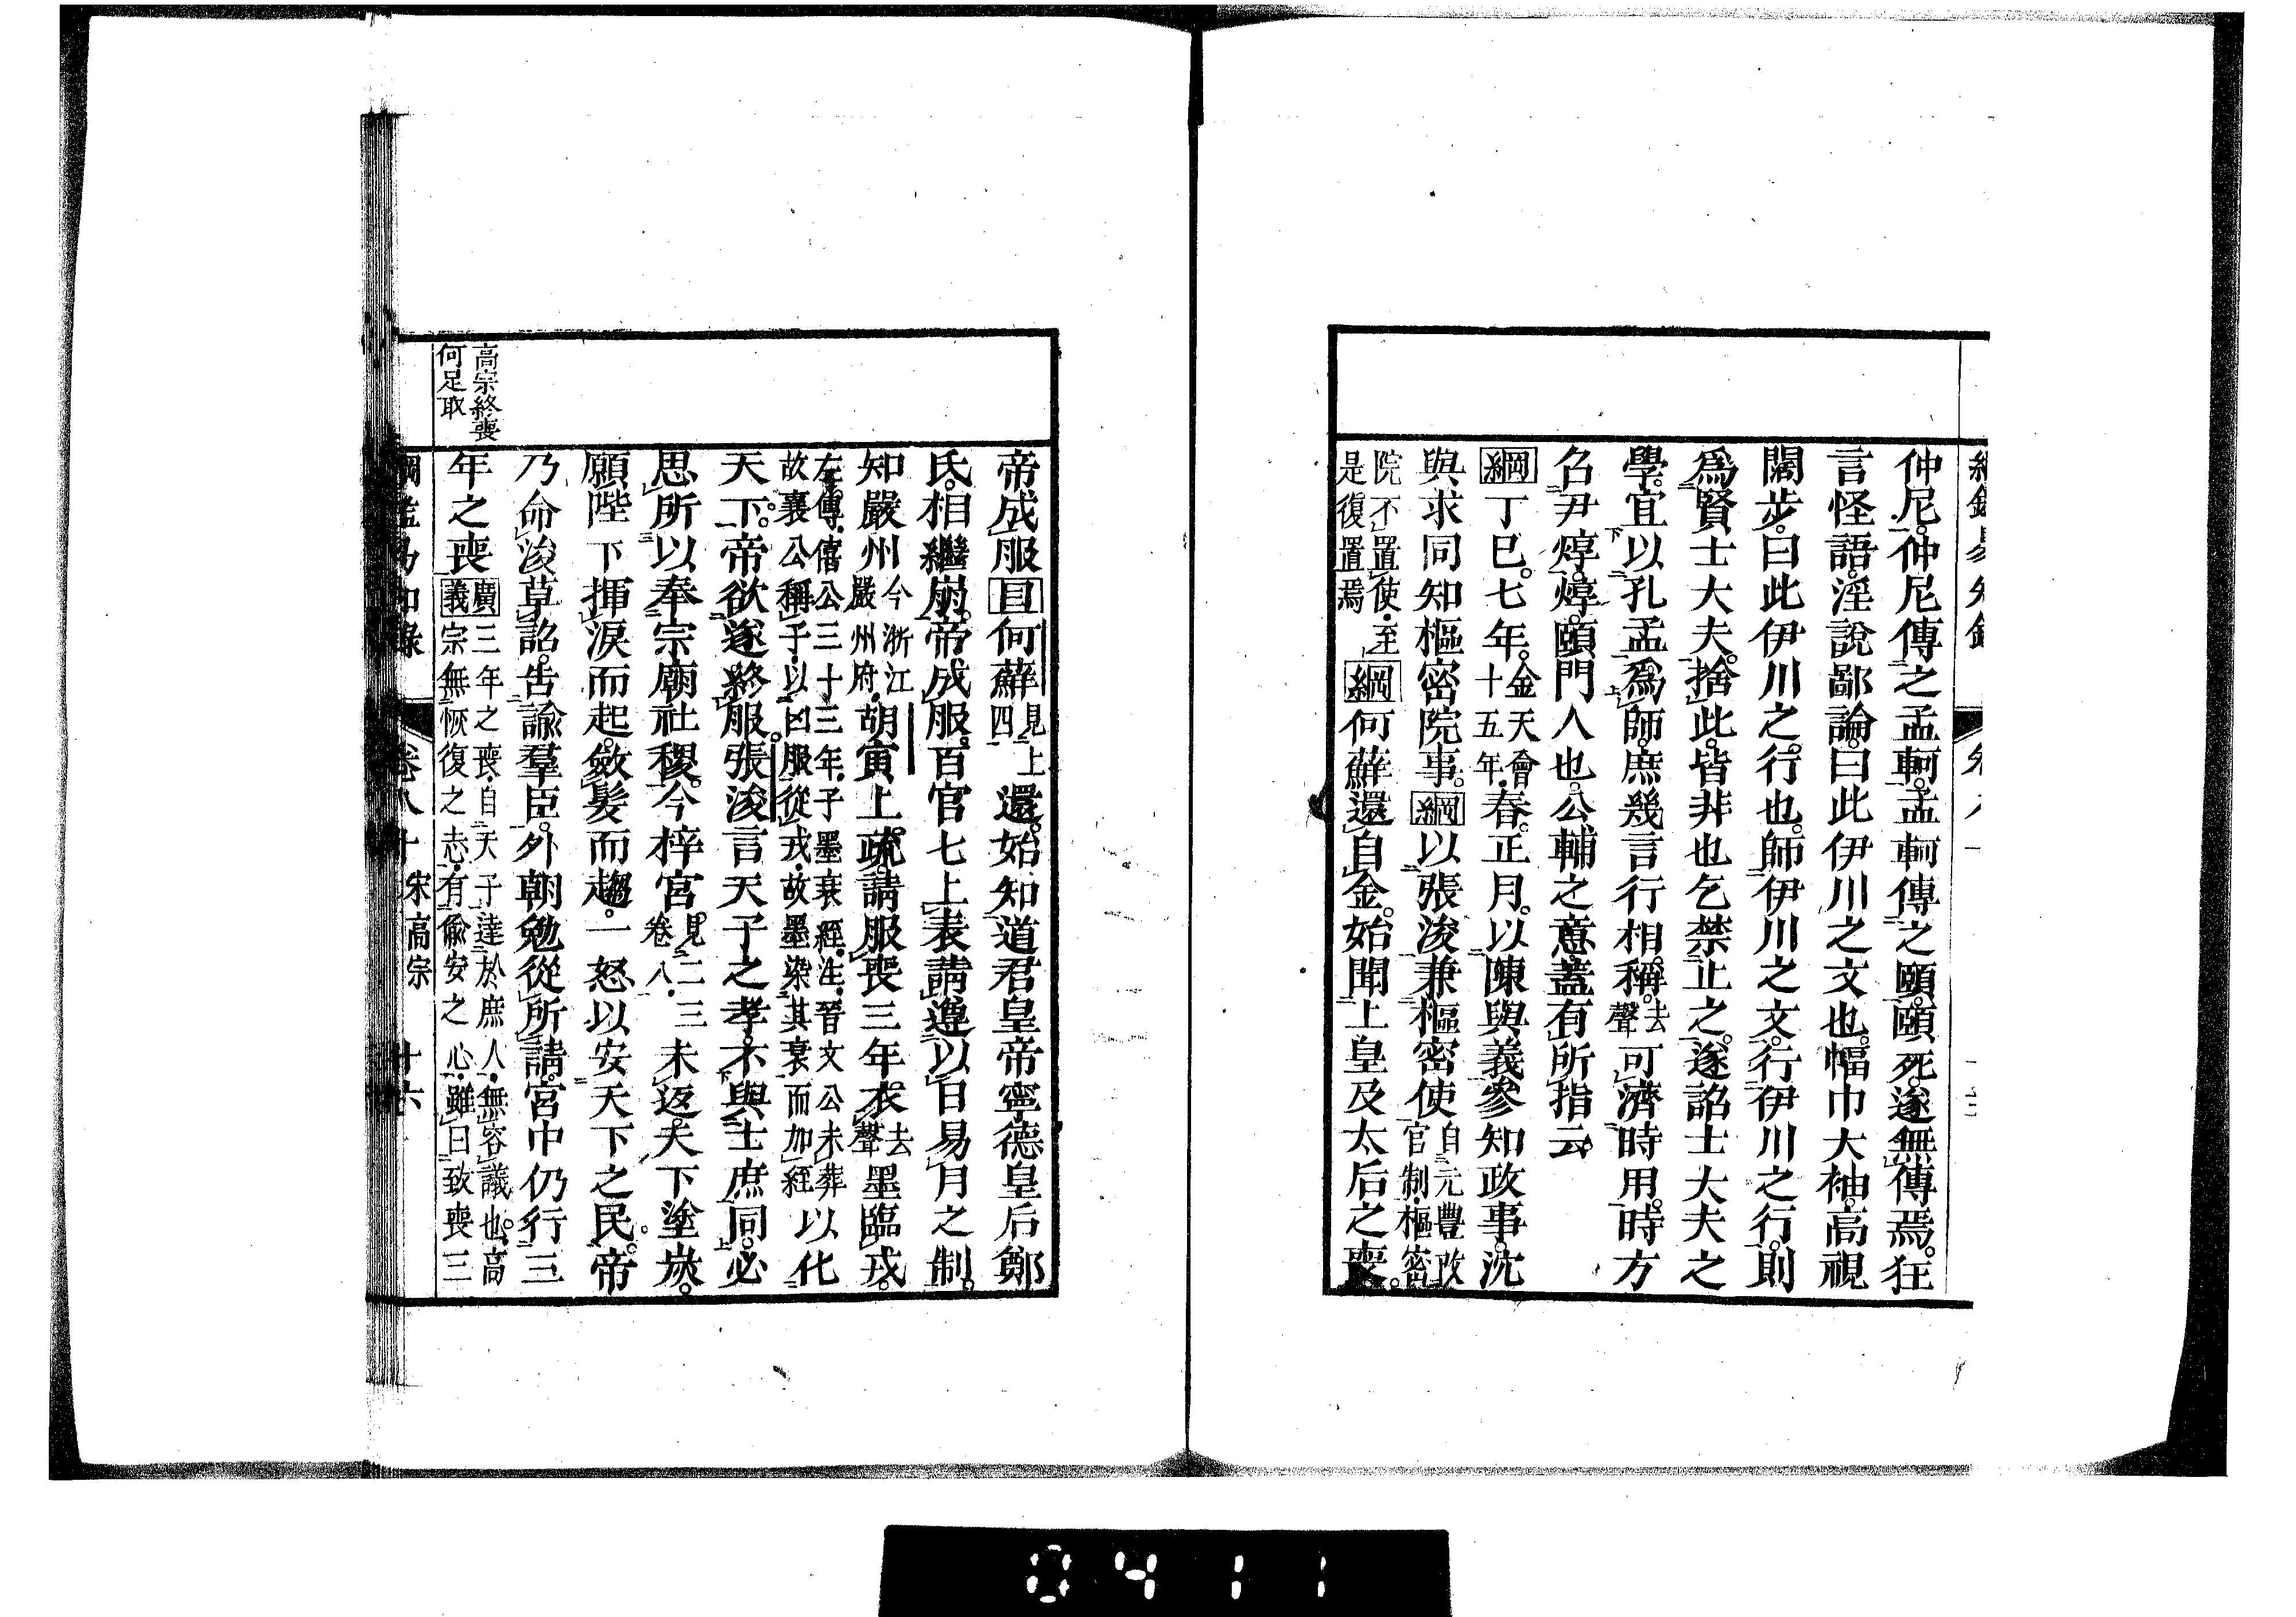 仲尼。仲尼傳之孟軻。孟軻傳之頤。頤死。遂無傳焉。狂
言怪語。淫說鄙論。曰此伊川之文也。幅巾大袖。高視
闊步。曰此伊川之行也。師伊川之文。行伊川之行。則
爲賢士大夫。捨此。皆非也。乞禁止之。遂詔士大夫之
學。宜以孔孟爲師。庶幾言行相稱。去聲可濟時用。時方
召尹焞。焞。頤門人也。公輔之意。蓋有所指云。
綱丁巳。七年。金天會十五年。春。正月。以陳與義參知政事。沈
與求同知樞密院事。綱以張浚兼樞密使。自元豐改官制。樞密
院不置使。至是復置焉綱何蘚還自金。始聞上皇及太后之喪。
帝成服目何蘚見上四還。始知道君皇帝寧德皇后鄭
氏。相繼崩。帝成服。百官七上表。請遵以日易月之制。
知嚴州今浙江嚴州府。胡寅。上疏。請服喪三年。衣去聲墨臨戎。
左傳。僖公三十三年。子墨衰絰。注。晉文公未葬故襄公稱子。以凶服從戎。故墨染其衰而加絰以化
天下。帝欲遂終服。張浚言天子之孝。不與士庶同。必
思所以奉宗廟社稷。今梓宮見二三卷八。未返。天下塗炭。
願陛下揮淚而起。斂髮而趨。一怒以安天下之民。帝
乃命浚草詔。告諭羣臣。外朝勉從所請。宮中仍行三
年之喪廣義三年之喪。自天子達於庶人。無容議也。高宗無恢復之志。有偸安之心。雖曰致喪三
高宗終喪
何足取
綱鑑易知錄 卷八十 宋高宗 十六